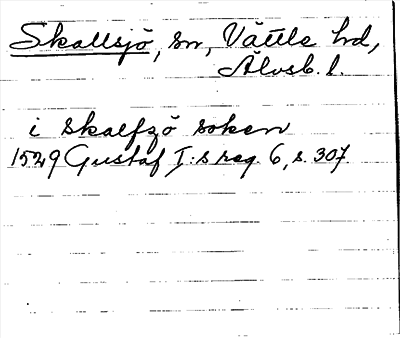 Skallsjö, sn, Vättle hd,
Älvsb. l.
i Skalfzö soken
1529 Gustaf I:s reg. 6, s. 307.